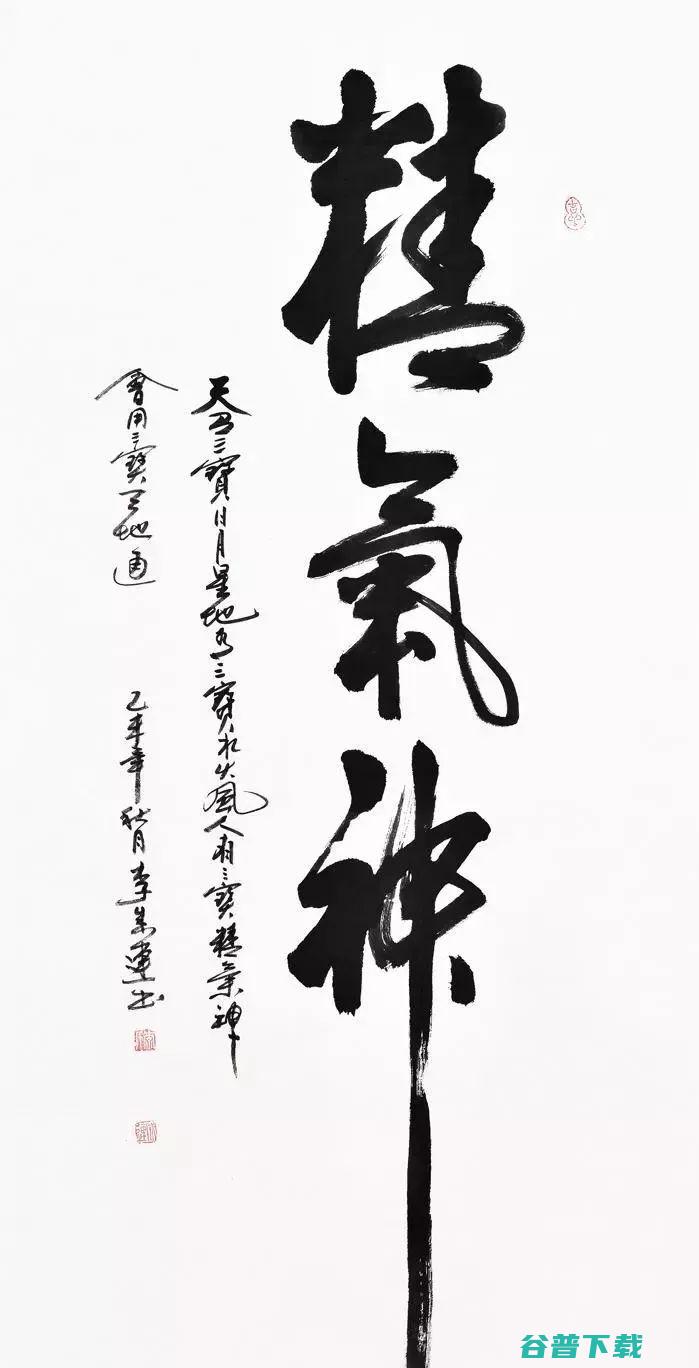 精氣神
天有三寶日月星地有三寶水火風人有三寶精氣神
會用三寶天地通
乙未年秋月李
谷普下载